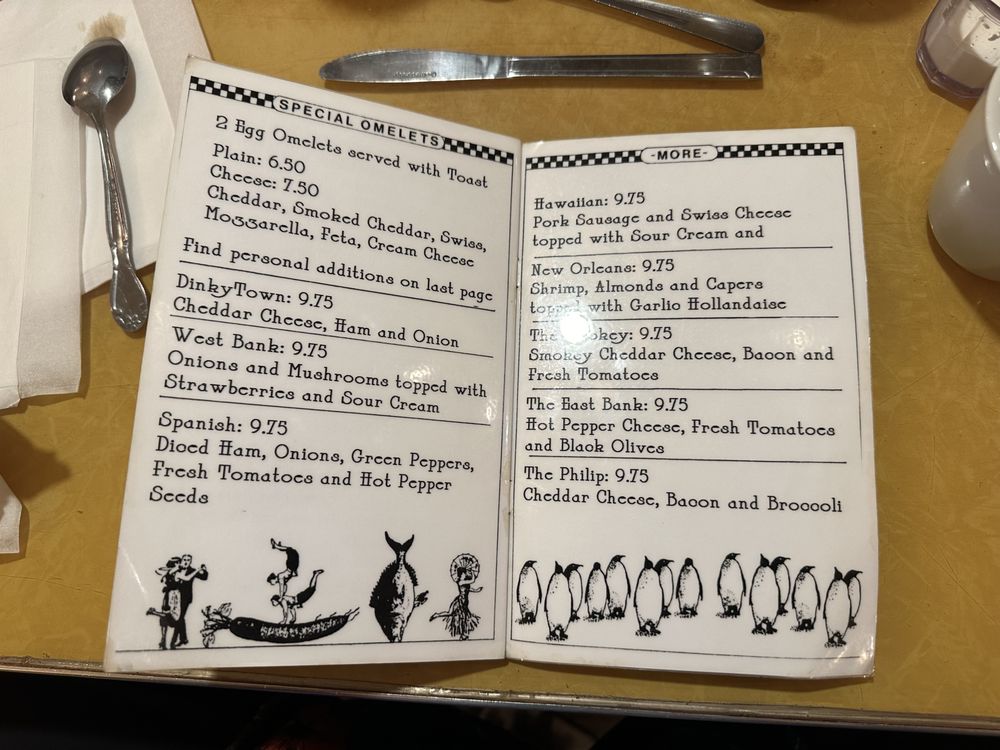 SPECIAL OMELETS
2 Egg Omelets served with Toast
Plain: 6.50
Cheese: 7.50
Cheddar, Smoked Cheddar, Swiss,
Mozzarella, Feta, Cream Cheese
Find personal additions on last page
DinkyTown: 9.75
Cheddar Cheese, Ham and Onion
West Bank: 9.75
Onions and Mushrooms topped with
Strawberries and Sour Cream
Spanish: 9.75
Diced Ham, Onions, Green Peppers,
Fresh Tomatoes and Hot Pepper
Seeds
-MORE-
Hawaiian: 9.75
Pork Sausage and Swiss Cheese
topped with Sour Cream and
New Orleans: 9.75
Shrimp, Almonds and Capers
topped with Garlic Hollandaise
The Smokey: 9.75
Smokey Cheddar Cheese, Bacon and
Fresh Tomatoes
The East Bank: 9.75
Hot Pepper Cheese, Fresh Tomatoes
and Black Olives
The Philip: 9.75
Cheddar Cheese, Bacon and Broccoli